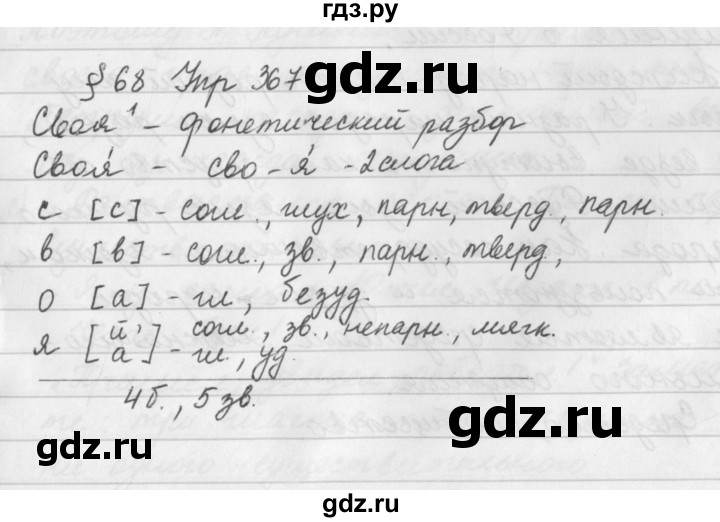 гдз.ру
§ 68 Упр 367
Своя¹ - фонетический разбор
Своя́ - сво - я́ - 2 слога
с [с] - согл., глух, парн, тверд., парн.
в [в] - согл., зв., парн., тверд.,
о [а] - гл, безуд.
я [й' согл., зв., непарн., мягк.
а] - гл., уд.
4б., 5 зв.
gdz.ru
gdz.ru
gdz.ru